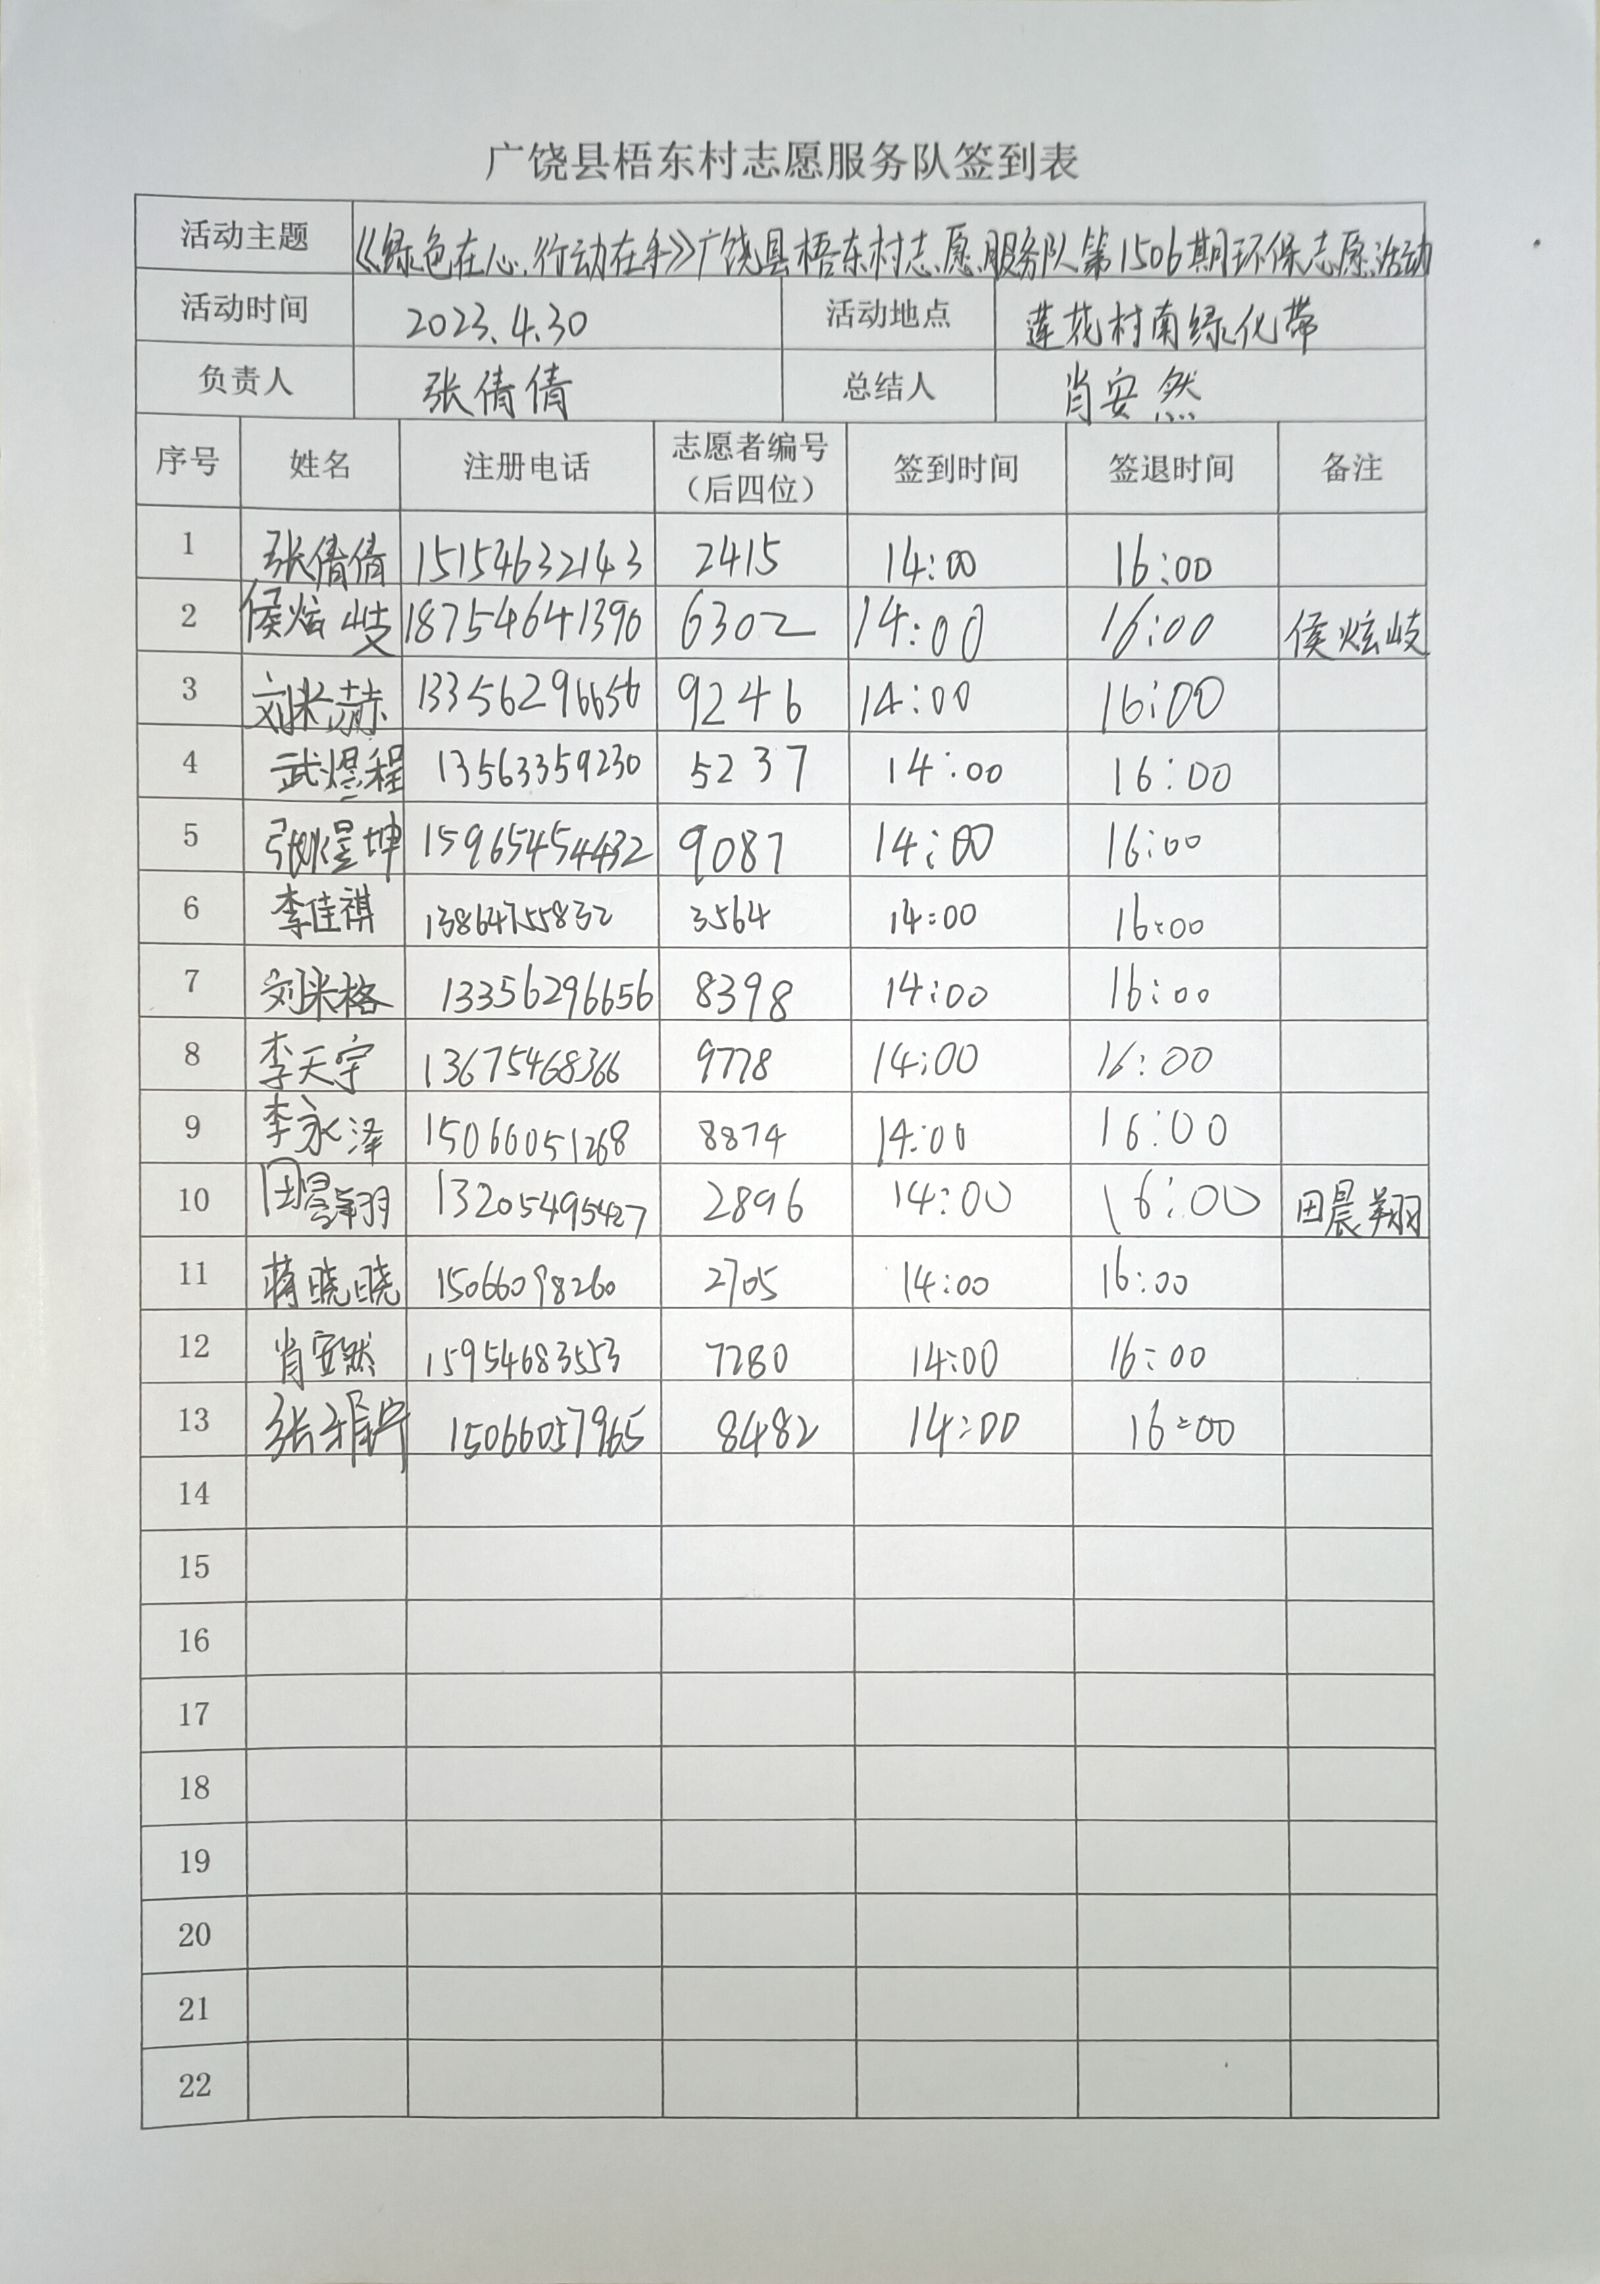 广饶县梧东村志愿服务队签到表
活动主题 《绿色在心,行动在手》广饶县梧东村志愿服务队第1506期环保志愿活动
活动时间 2023.4.30 活动地点 莲花村南绿化带
负责人 张倩倩 总结人 肖安然
序号 姓名 注册电话 志愿者编号（后四位） 签到时间 签退时间 备注
1 张倩倩 15154632143 2415 14:00 16:00
2 侯炫岐 18754641390 6302 14:00 16:00 侯炫岐
3 刘米赫 13356296656 9246 14:00 16:00
4 武煜程 13563359230 5237 14:00 16:00
5 张煜坤 15965454432 9087 14:00 16:00
6 李佳祺 13864755832 3564 14:00 16:00
7 刘米格 13356296656 8398 14:00 16:00
8 李天宇 13675468366 9778 14:00 16:00
9 李永泽 15066051268 8874 14:00 16:00
10 田晨翔 13205495427 2896 14:00 16:00 田晨翔
11 蒋晓晓 15066098260 2705 14:00 16:00
12 肖安然 15954683553 7280 14:00 16:00
13 张 15066057965 8482 14:00 16:00
14
15
16
17
18
19
20
21
22